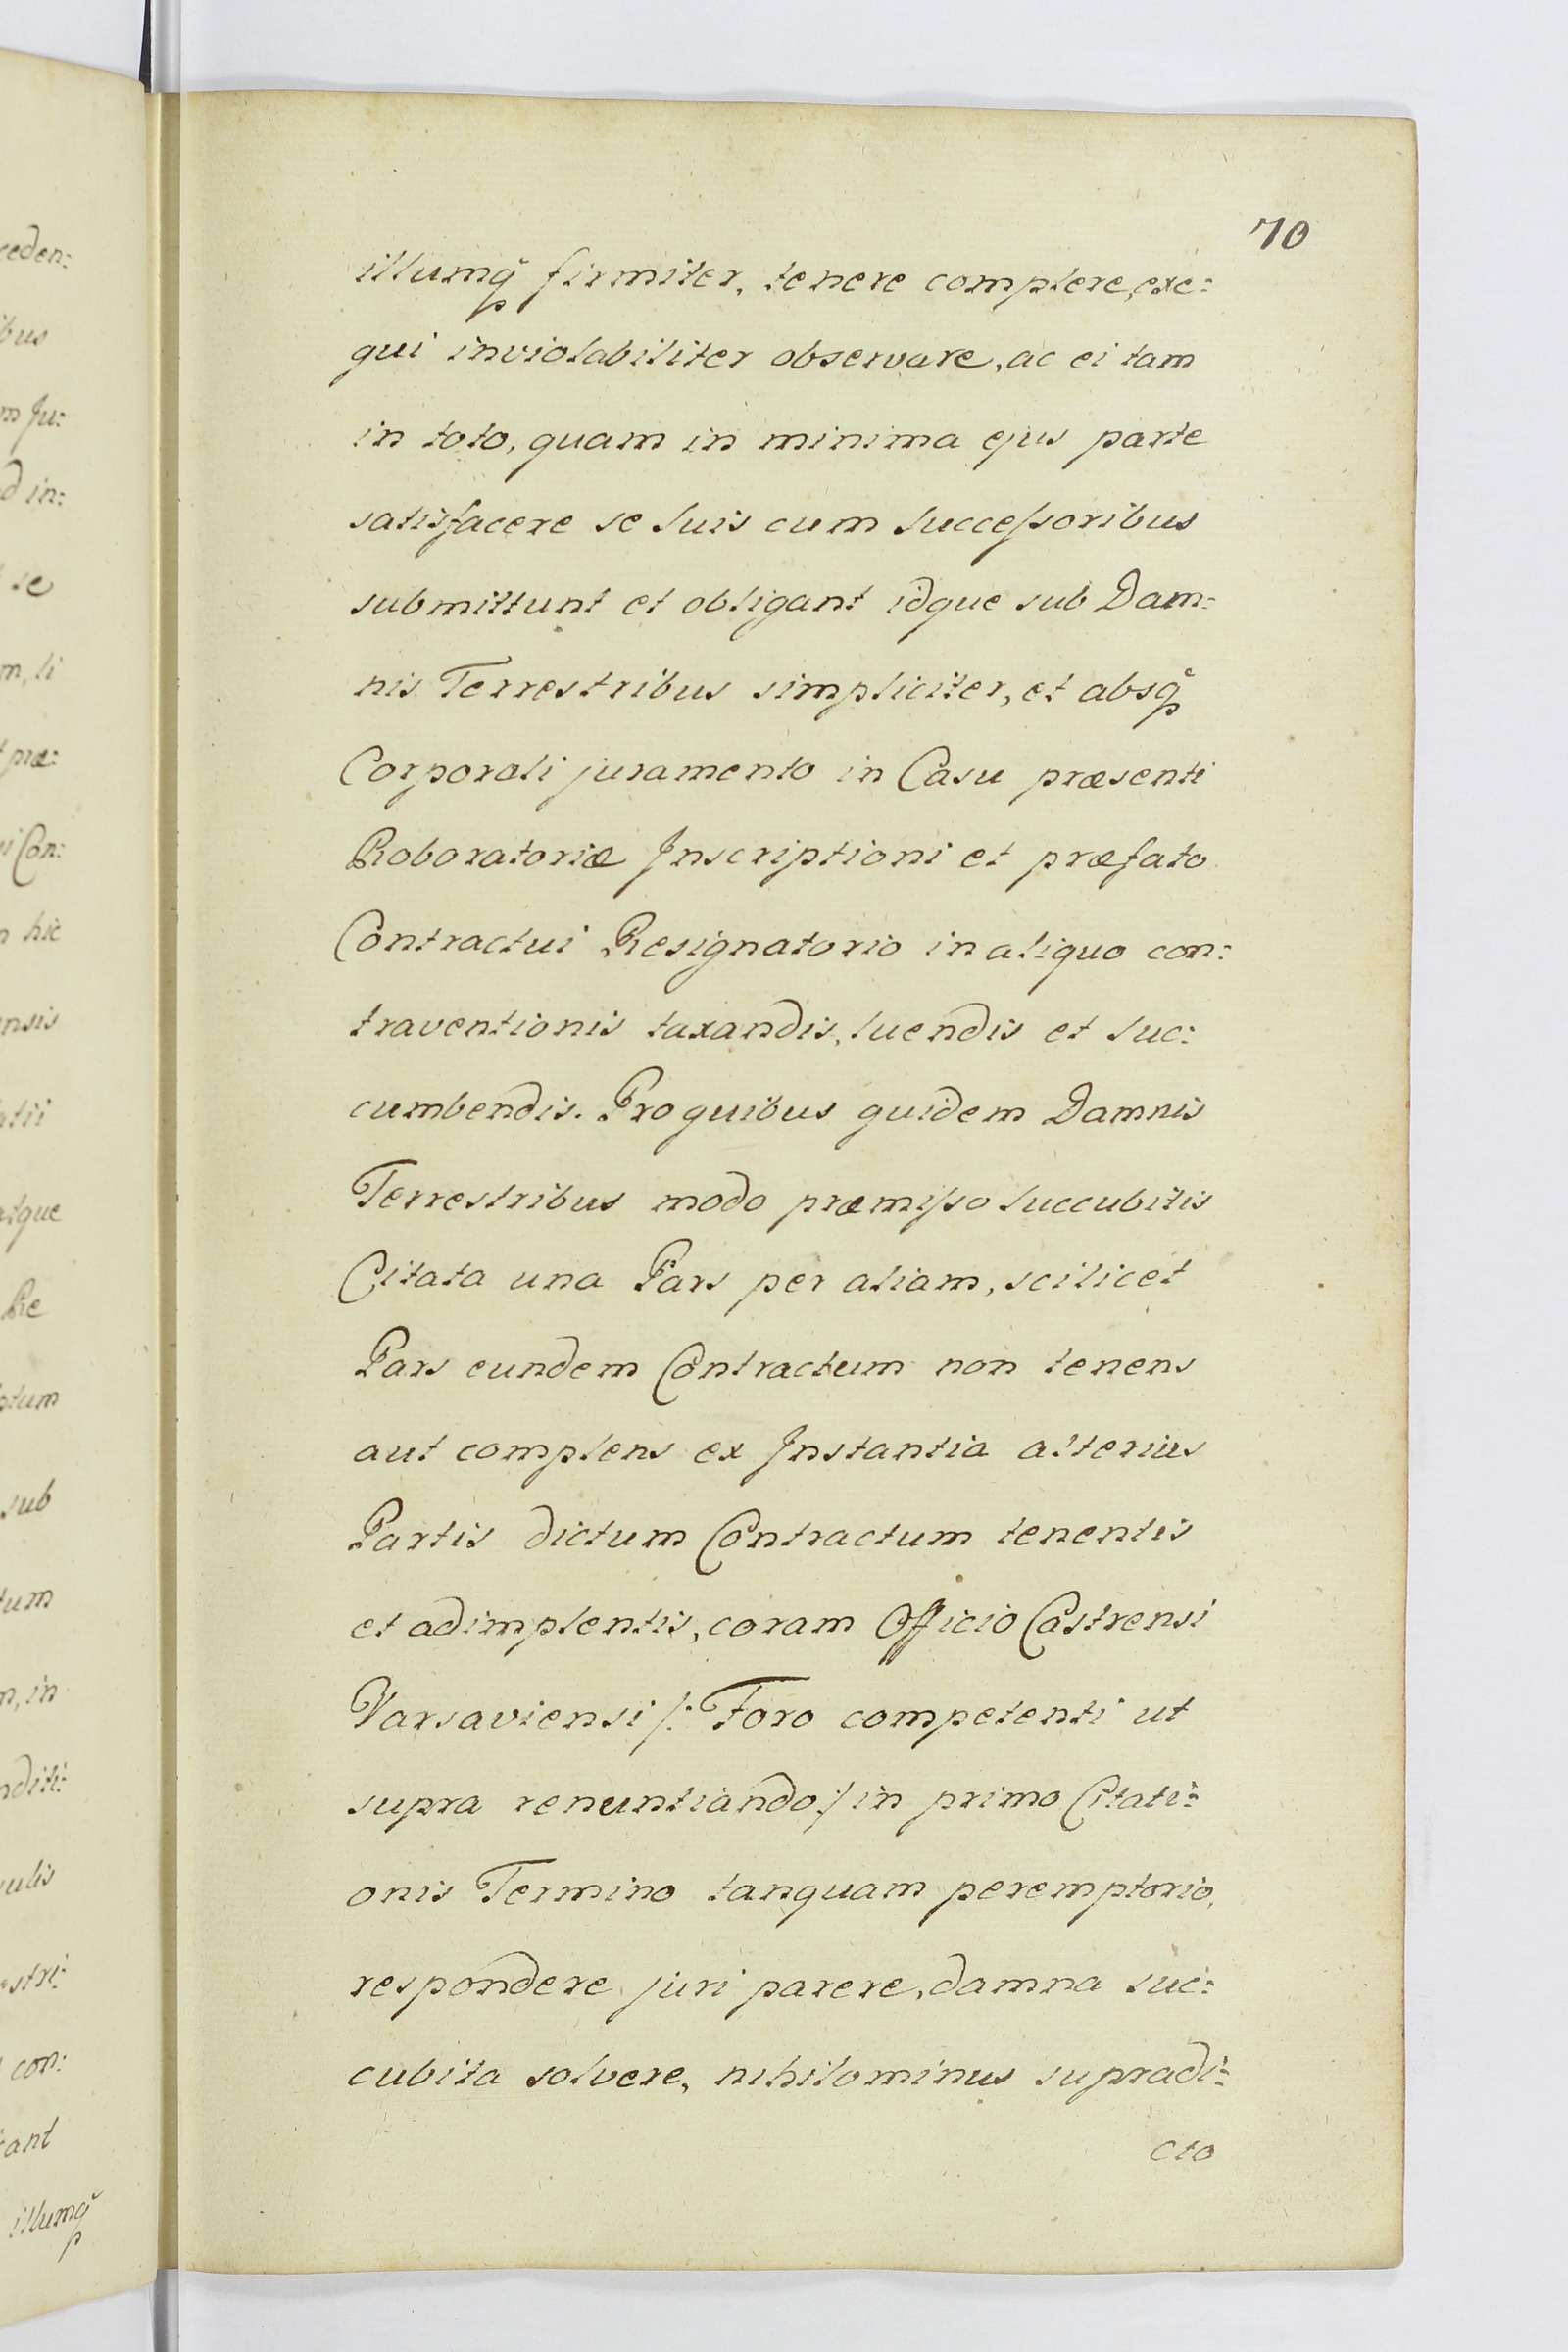 70
illumq̃ firmiter, tenere complere, exe:
qui inviolabiliter observare, ac ei tam
in toto, quam in minima ejus parte
satisfacere se suis cum Succeſsoribus
submittunt et obligant idque sub Dam:
nis Terrestribus simpliciter, et absq̃
Corporali juramento in Casu præsenti
Roboratoriæ Inscriptioni et præfato
Contractui Resignatorio in aliquo con:
traventionis taxandis, luendis et suc:
cumbendis. Pro quibus quidem Damnis
Terrestribus modo præmiſso succubitis
Citata una Pars per aliam, scilicet
Pars eundem Contractum non tenens
aut complens ex Instantia alterius
Partis dictum Contractum tenentis
et adimplentis, coram Officio Castrensi
Varsaviensi /: Foro competenti ut
supra renuntiando :/ in primo Citati:
onis Termino tanquam peremptorio,
respondere, juri parere, damna suc:
cubita solvere, nihilominus supradi:
cto
ceden:
ibus
m Ju:
d in:
se
m, li
præ:
i Con:
hic
ensis
atii
atque
Re
otum
sub
tum
n, in
nditi:
ulis
astri:
con:
cant
illumq̃